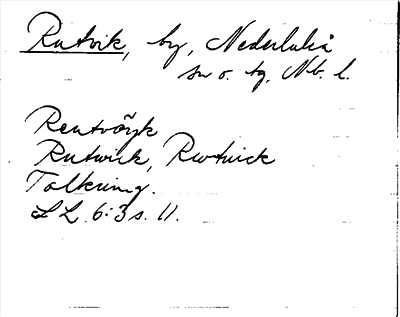 Rutvik, by, Nederluleå
sn o. tg, Nb. l.
Rentvöyk
Rutwick, Rwtuick
Tolkning.
LL 6:3 s. 11.